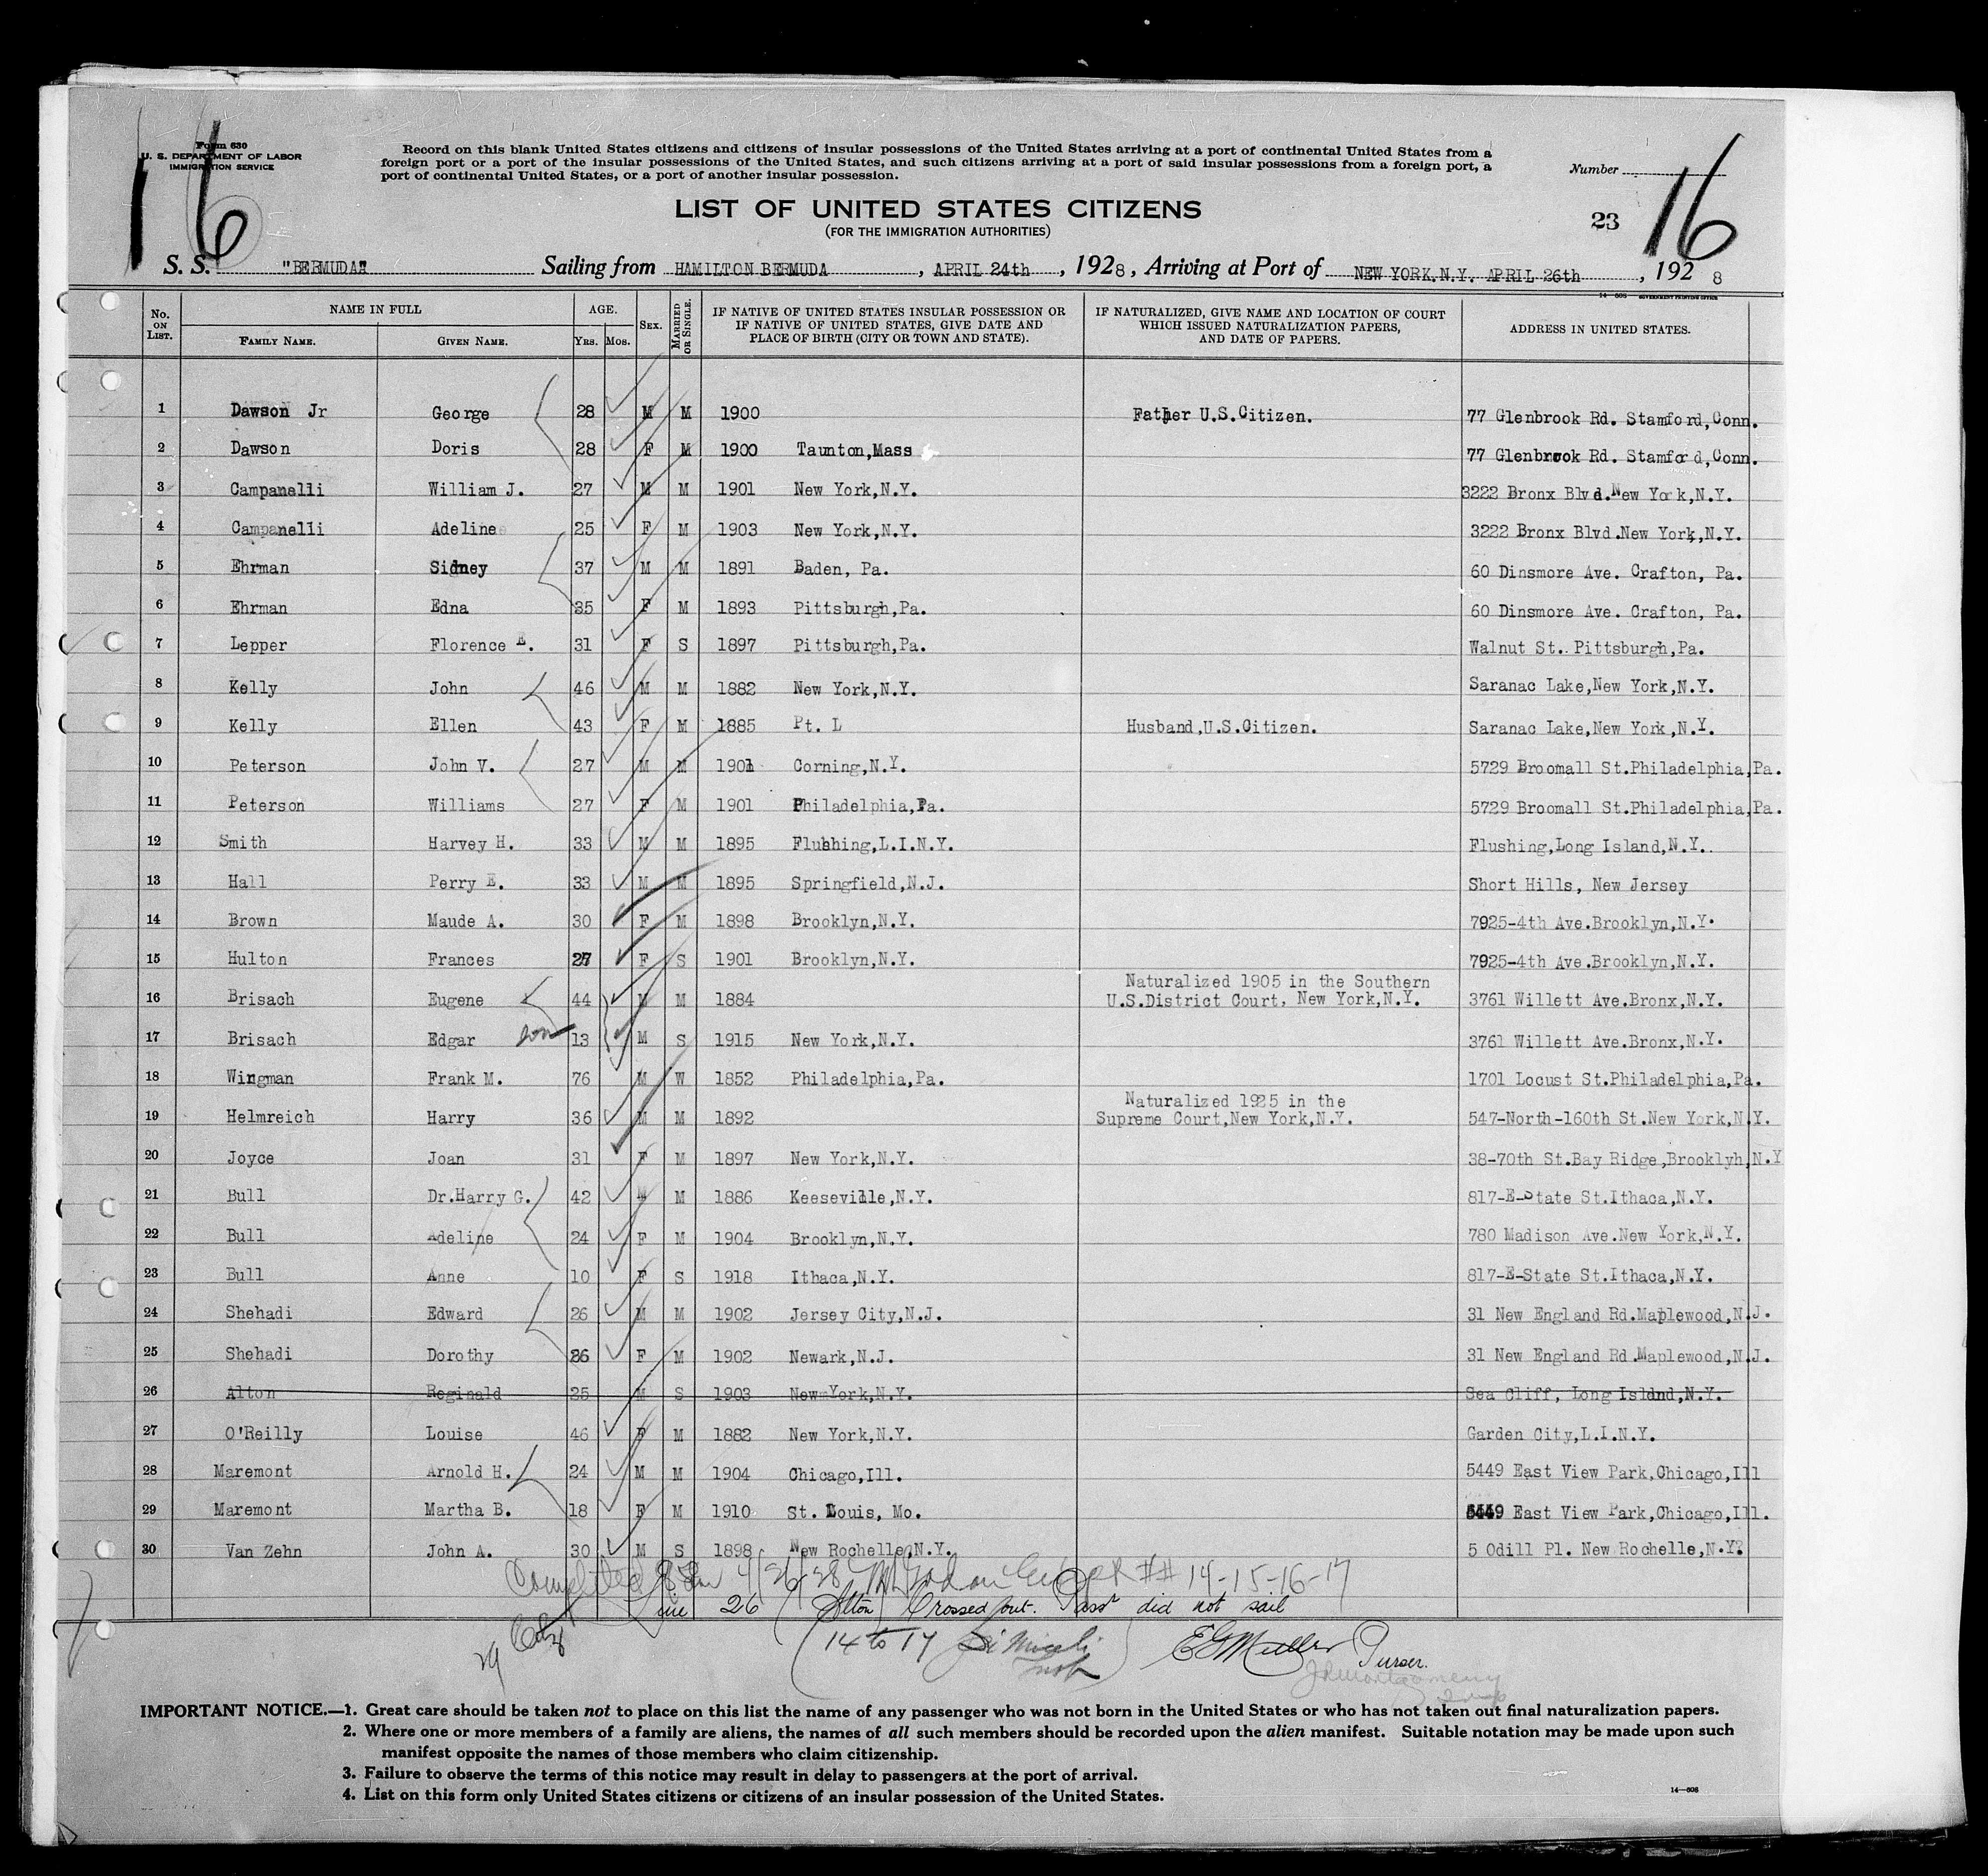 16
Form 630
U. S. DEPARTMENT OF LABOR
IMMIGRATION SERVICE
Record on this blank United States citizens and citizens of insular possessions of the United States arriving at a port of continental United States from a
foreign port or a port of the insular possessions of the United States, and such citizens arriving at a port of said insular possessions from a foreign port, a
port of continental United States, or a port of another insular possession.
Number
LIST OF UNITED STATES CITIZENS
(FOR THE IMMIGRATION AUTHORITIES)
23 16
S. S. "BERMUDA" Sailing from HAMILTON BERMUDA, APRIL 24th, 1928, Arriving at Port of NEW YORK,N.Y. APRIL 26th, 1928
14—808 GOVERNMENT PRINTING OFFICE
No. ON LIST. NAME IN FULL FAMILY NAME. GIVEN NAME. AGE. YRS. MOS. SEX. MARRIED OR SINGLE. IF NATIVE OF UNITED STATES INSULAR POSSESSION OR IF NATIVE OF UNITED STATES, GIVE DATE AND PLACE OF BIRTH (CITY OR TOWN AND STATE). IF NATURALIZED, GIVE NAME AND LOCATION OF COURT WHICH ISSUED NATURALIZATION PAPERS, AND DATE OF PAPERS. ADDRESS IN UNITED STATES.
1 Dawson Jr George 28 M M 1900 Father U.S.Citizen. 77 Glenbrook Rd. Stamford,Conn.
2 Dawson Doris 28 F M 1900 Taunton,Mass 77 Glenbrook Rd. Stamford,Conn.
3 Campanelli William J. 27 M M 1901 New York,N.Y. 3222 Bronx Blvd.New York,N.Y.
4 Campanelli Adeline 25 F M 1903 New York,N.Y. 3222 Bronx Blvd.New York,N.Y.
5 Ehrman Sidney 37 M M 1891 Baden, Pa. 60 Dinsmore Ave. Crafton, Pa.
6 Ehrman Edna 35 F M 1893 Pittsburgh,Pa. 60 Dinsmore Ave. Crafton, Pa.
7 Lepper Florence E. 31 F S 1897 Pittsburgh,Pa. Walnut St. Pittsburgh,Pa.
8 Kelly John 46 M M 1882 New York,N.Y. Saranac Lake,New York,N.Y.
9 Kelly Ellen 43 F M 1885 Pt. L Husband,U.S.Citizen. Saranac Lake,New York,N.Y.
10 Peterson John V. 27 M M 1901 Corning,N.Y. 5729 Broomall St.Philadelphia,Pa.
11 Peterson Williams 27 F M 1901 Philadelphia,Pa. 5729 Broomall St.Philadelphia,Pa.
12 Smith Harvey H. 33 M M 1895 Flushing,L.I.N.Y. Flushing,Long Island,N.Y.
13 Hall Perry E. 33 M M 1895 Springfield,N.J. Short Hills, New Jersey
14 Brown Maude A. 30 F M 1898 Brooklyn,N.Y. 7925-4th Ave.Brooklyn,N.Y.
15 Hulton Frances 27 F S 1901 Brooklyn,N.Y. 7925-4th Ave.Brooklyn,N.Y.
16 Brisach Eugene 44 M M 1884 Naturalized 1905 in the Southern U.S.District Court, New York,N.Y. 3761 Willett Ave.Bronx,N.Y.
17 Brisach Edgar son 13 M S 1915 New York,N.Y. 3761 Willett Ave.Bronx,N.Y.
18 Wingman Frank M. 76 M W 1852 Philadelphia,Pa. 1701 Locust St.Philadelphia,Pa.
19 Helmreich Harry 36 M M 1892 Naturalized 1925 in the Supreme Court,New York,N.Y. 547-North-160th St.New York,N.Y.
20 Joyce Joan 31 F M 1897 New York,N.Y. 38-70th St.Bay Ridge,Brooklyh,N.Y
21 Bull Dr.Harry G. 42 M M 1886 Keeseville,N.Y. 817-E-State St.Ithaca,N.Y.
22 Bull Adeline 24 F M 1904 Brooklyn,N.Y. 780 Madison Ave.New York,N.Y.
23 Bull Anne 10 F S 1918 Ithaca,N.Y. 817-E-State St.Ithaca,N.Y.
24 Shehadi Edward 26 M M 1902 Jersey City,N.J. 31 New England Rd.Maplewood,N.J.
25 Shehadi Dorothy 26 F M 1902 Newark,N.J. 31 New England Rd.Maplewood,N.J.
26 Alton Reginald 25 M S 1903 New York,N.Y. Sea Cliff, Long Isldnd,N.Y.
27 O'Reilly Louise 46 F M 1882 New York,N.Y. Garden City,L.I.N.Y.
28 Maremont Arnold H. 24 M M 1904 Chicago,Ill. 5449 East View Park,Chicago,Ill
29 Maremont Martha B. 18 F M 1910 St. Louis, Mo. 5449 East View Park,Chicago,Ill.
30 Van Zehn John A. 30 M S 1898 New Rochelle,N.Y. 5 Odill Pl. New Rochelle,N.Y.
Completed 4/26/28 ## 14-15-16-17
Line 26 (Alton) Crossed out. Passr did not sail
29 (14 to 17 ) EGMuller Purser.
JRMontgomery
IMPORTANT NOTICE.—1. Great care should be taken not to place on this list the name of any passenger who was not born in the United States or who has not taken out final naturalization papers.
2. Where one or more members of a family are aliens, the names of all such members should be recorded upon the alien manifest. Suitable notation may be made upon such
manifest opposite the names of those members who claim citizenship.
3. Failure to observe the terms of this notice may result in delay to passengers at the port of arrival.
4. List on this form only United States citizens or citizens of an insular possession of the United States.
14—808